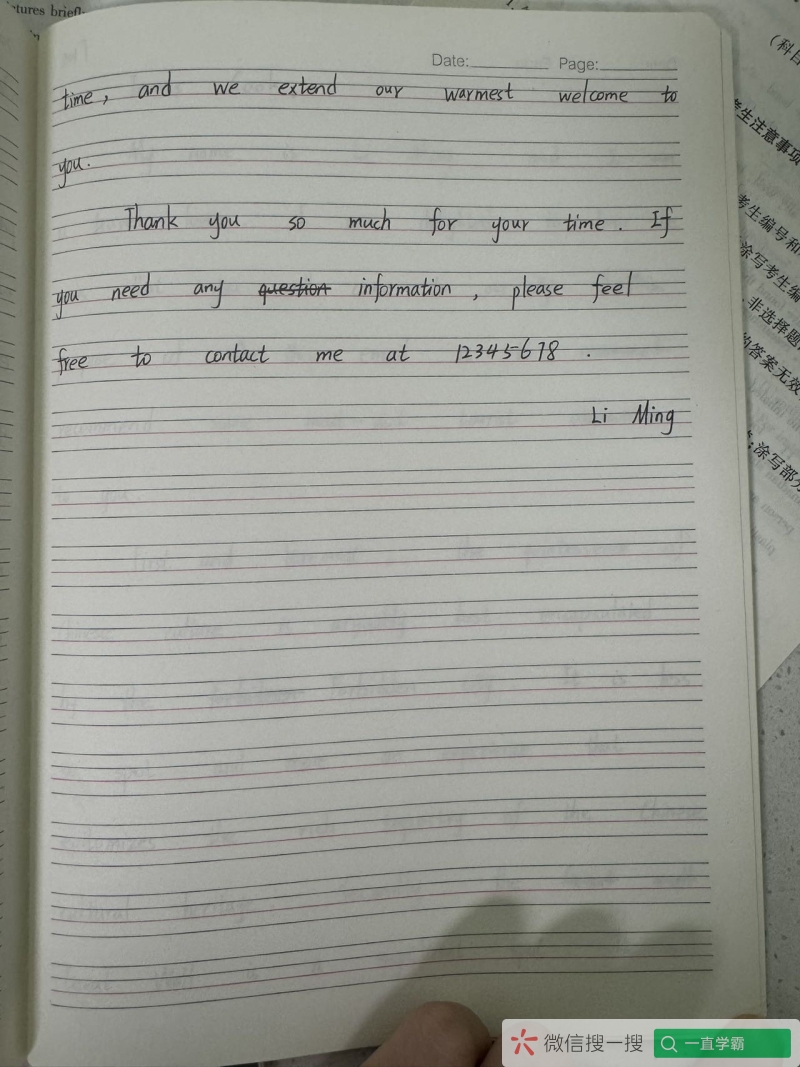 Date: Page:
time, and we extend our warmest welcome to
you.
Thank you so much for your time. If
you need any question information, please feel
free to contact me at 12345678.
Li Ming
tures briefl
(科目
考生注意事项
考生编号和
涂写考生编
非选择题
的答案无效
涂写部分
微信搜一搜
一直学霸